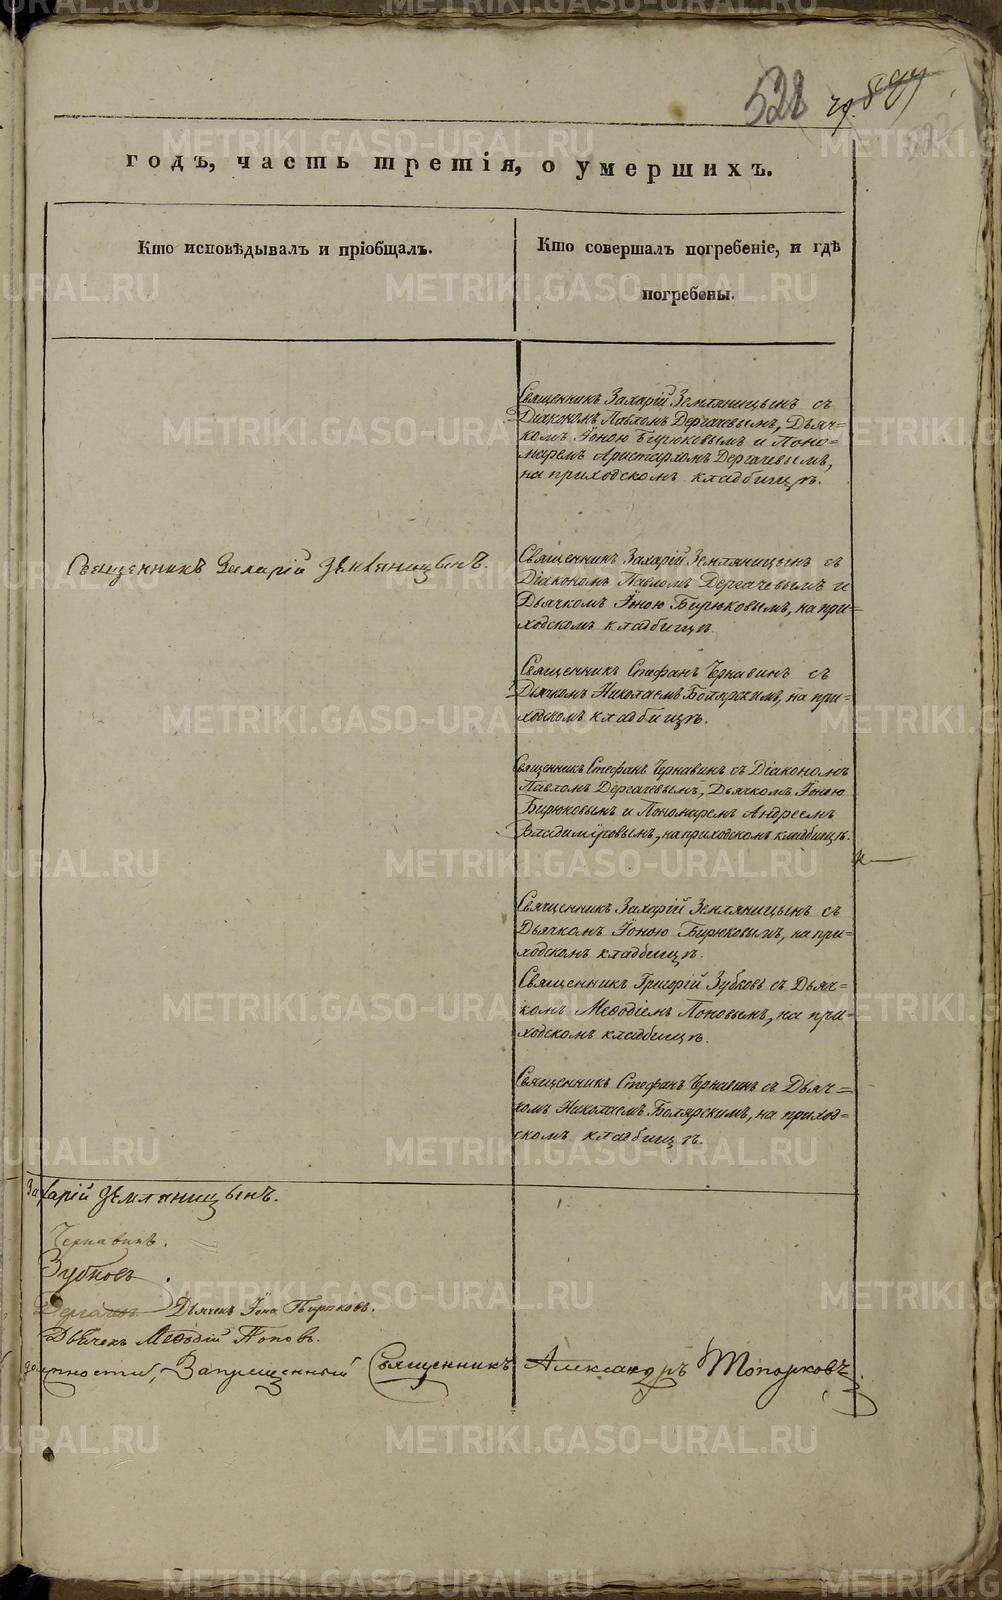 528
годъ, часть третія, о умершихъ.
Кто исповѣдывалъ и пріобщалъ.
Кто совершалъ погребеніе, и гдѣ
погребены.
Священникъ Захарій Земляницынъ съ
Діакономъ Павломъ Дергачевымъ, Дьяч=
комъ Іоною Бирюковымъ и Поно=
маремъ Аристархомъ Дергачевымъ,
на приходскомъ кладбищѣ.
Священникъ Захарій Земляницынъ.
Священникъ Захарій Земляницынъ съ
Діакономъ Павломъ Дергачевымъ и
Дьячкомъ Іоною Бирюковымъ, на при=
ходскомъ кладбищѣ.
Священникъ Стефанъ Чернавинъ съ
Дьячкомъ Николаемъ Болярскимъ, на при=
ходскомъ кладбищѣ.
Священникъ Стефанъ Чернавинъ съ Діакономъ
Павломъ Дергачевымъ, Дьячкомъ Іоною
Бирюковымъ и Пономаремъ Андреемъ
Владиміровымъ, на приходскомъ кладбищѣ.
Священникъ Захарій Земляницынъ съ
Дьячкомъ Іоною Бирюковымъ, на при=
ходскомъ кладбищѣ.
Священникъ Григорій Зубковъ съ Дьяч=
комъ Меѳодіемъ Поповымъ, на при=
ходскомъ кладбищѣ.
Священникъ Стефанъ Чернавинъ съ Дьяч=
комъ Николаемъ Болярскимъ, на приход=
скомъ кладбищѣ.
Захарій Земляницынъ.
Чернавинъ.
Зубковъ.
Дергачевъ Дьячекъ Іона Бирюковъ.
Дьячекъ Меѳодій Поповъ.
должности, Запрещенный Священникъ Александръ Топорковъ.
METRIKI.GASO-URAL.RU